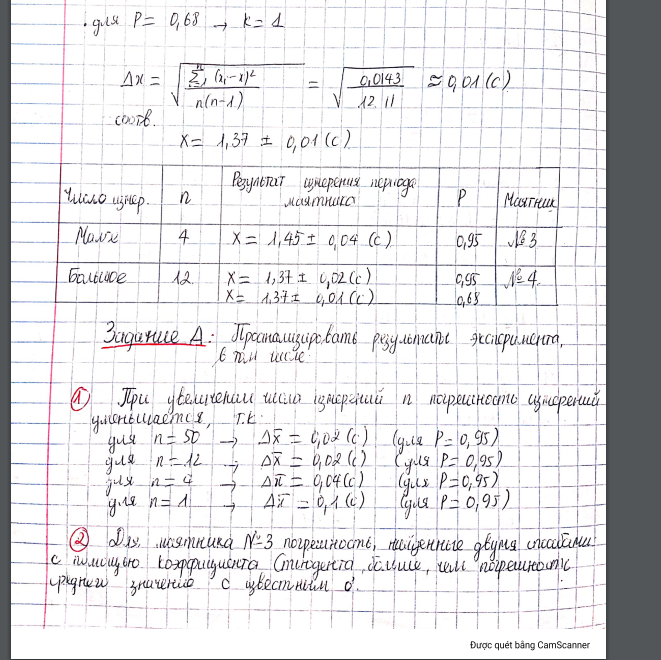 . для P = 0,68 → k = 1
Δx = √(∑(xᵢ-x)² / n(n-1)) = √(0,0143 / 12.11) ≈ 0,01 (с)
соотв.
x = 1,37 ± 0,01 (с)
Число измер. n Результат измерения периода маятника P Маятник
Малое 4 x = 1,45 ± 0,04 (с) 0,95 № 3
Большое 12 x = 1,37 ± 0,02 (с) 0,95 № 4
x = 1,37 ± 0,01 (с) 0,68
Задание Д: Проанализировать результаты эксперимента,
в том числе:
① При увеличении числа измерений n погрешность измерений
уменьшается, т.к.
для n = 50 → Δx̄ = 0,02 (с) (для P = 0,95)
для n = 12 → Δx̄ = 0,02 (с) (для P = 0,95)
для n = 4 → Δx̄ = 0,04 (с) (для P = 0,95)
для n = 1 → Δx̄ = 0,1 (с) (для P = 0,95)
② Для маятника № 3 погрешность, найденные двумя способами:
с помощью коэффициента Стьюдента, больше, чем погрешность
среднего значение с известным σ.
Được quét bằng CamScanner